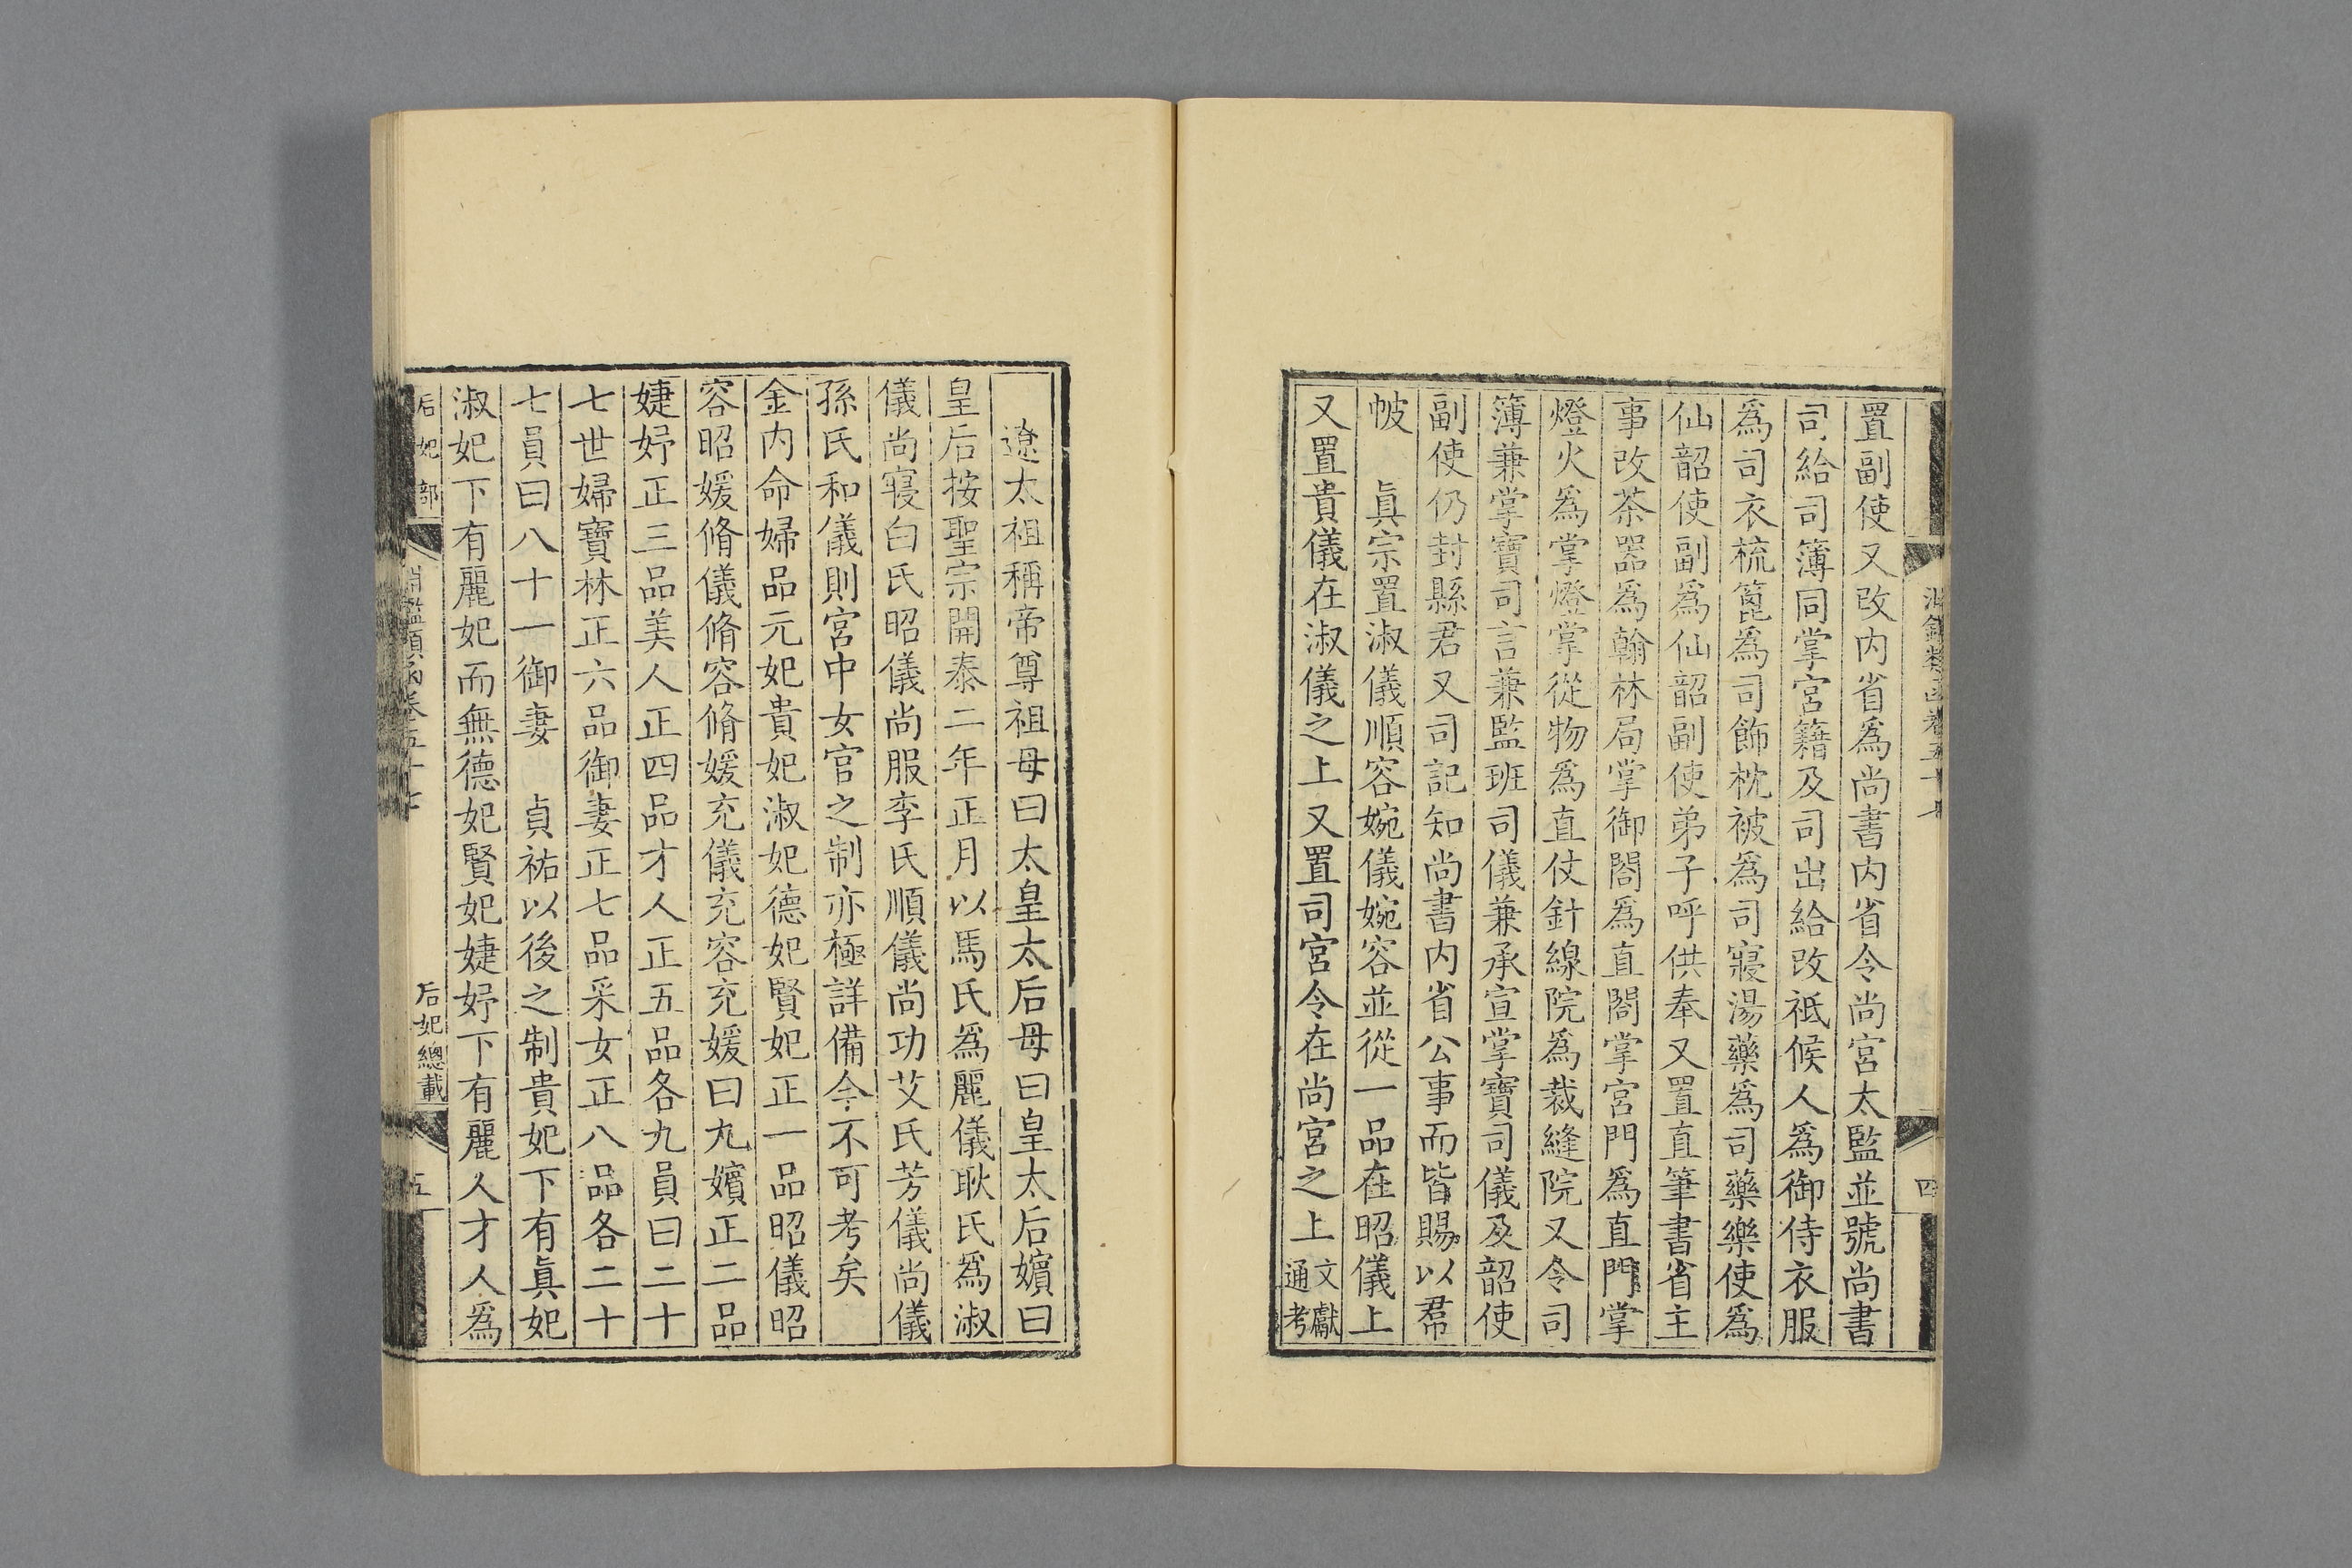 置副使又改内省爲尚書内省令尚宮太監並號尚書
司給司簿同掌宮籍及司出給改祗候人爲御侍衣服
爲司衣梳篦爲司飾枕被爲司寢湯藥爲司藥樂使爲
仙韶使副爲仙韶副使弟子呼供奉又置直筆書省主
事改茶器爲翰林局掌御閤爲直閤掌宮門爲直門掌
燈火爲掌燈掌從物爲直仗針線院爲裁縫院又令司
簿兼掌寶司言兼監班司儀兼承宣掌寶司儀及韶使
副使仍封縣君又司記知尚書内省公事而皆賜以帬
帔　眞宗置淑儀順容婉儀婉容並從一品在昭儀上
又置貴儀在淑儀之上又置司宮令在尚宮之上文獻通考
四
遼太祖稱帝尊祖母曰太皇太后母曰皇太后嬪曰
皇后按聖宗開泰二年正月以馬氏爲麗儀耿氏爲淑
儀尚寢白氏昭儀尚服李氏順儀尚功艾氏芳儀尚儀
孫氏和儀則宮中女官之制亦極詳備今不可考矣
金内命婦品元妃貴妃淑妃德妃賢妃正一品昭儀昭
容昭媛脩儀脩容脩媛充儀充容充媛曰九嬪正二品
婕妤正三品美人正四品才人正五品各九員曰二十
七世婦寶林正六品御妻正七品采女正八品各二十
七員曰八十一御妻　貞祐以後之制貴妃下有眞妃
淑妃下有麗妃而無德妃賢妃婕妤下有麗人才人爲
后妃部
后妃總載
五